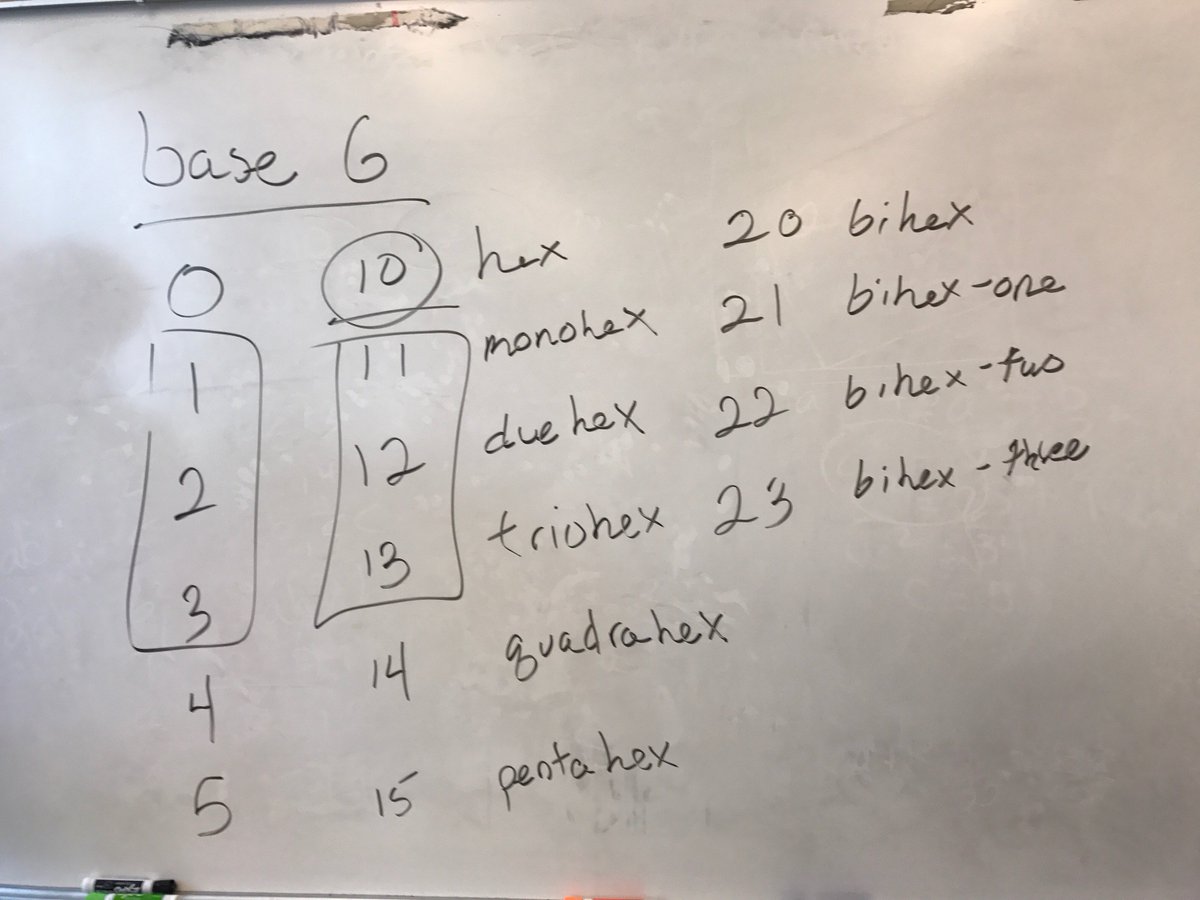 base 6
0 10 hex 20 bihex
1 11 monohex 21 bihex-one
2 12 duehex 22 bihex-two
3 13 triohex 23 bihex-three
4 14 quadrahex
5 15 pentahex